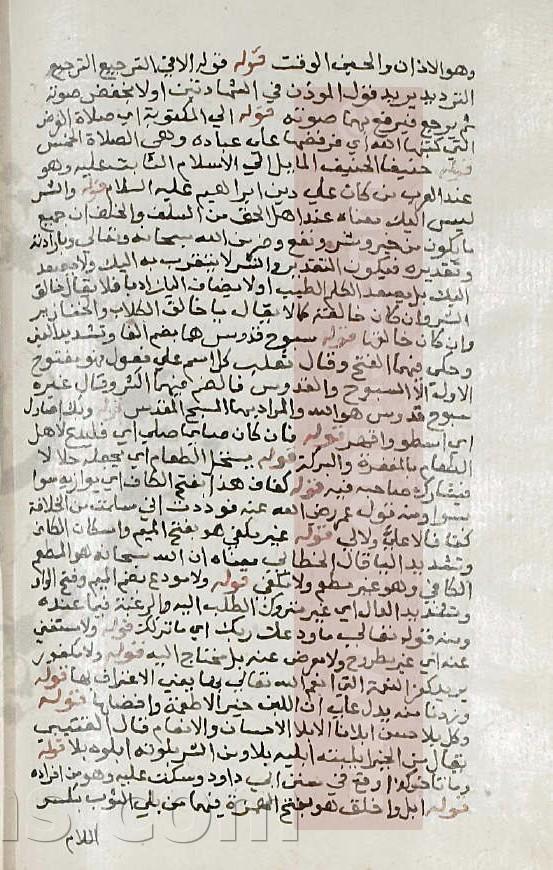 وهو الاذان والحين الوقت قوله قوله الا في الترجيع الترجيع
الترديد يريد قول الموذن في الشهادتين اولا بخفض صوته
ثم يرجع فيرفع بهما صوته قوله الي المكتوبة اي صلاة الفرض
التي كتبها الله اي فرضها علي عباده وهي الصلاة الخمس
قوله حنيفا الحنيف المايل الي الاسلام الثابت عليه وهو
عند العرب من كان علي دين ابراهيم عليه السلام قوله والشر
ليس اليك معناه عند اهل الحق من السلف والخلف ان جميع
ما يكون من خير وشر ونفع وضر من الله سبحانه وتعالي وبارادته
وتقديره فيكون التقدير والشر لا يتقرب به اليك ولا يصعد
اليك بل يصعد الكلم الطيب او لا يضاف اليك ادبا فلا يقال خالق
الشر وان كان خالقه كما لا يقال يا خالق الكلاب والخنازير
وان كان خالقها قوله سبوح قدوس هما بضم الفا وتشديد العين
وحكي فيهما الفتح وقال ثعلب كل اسم علي فعول فهو مفتوح
الاول الا السبوح والقدوس فالضم فيهما اكثر وقال غيره
سبوح قدوس هو الله والمراد بهما المسبح المقدس قوله
قوله فان كان صايما صلي اي فليدع لاهل
الطعام بالمغفرة والبركة قوله يستحل الطعام اي يجعله حلالا
فيشارك صاحبه فيه قوله كفاف هذا بفتح الكاف اي سوا
بسوا ومنه قول عمر رضي الله عنه وددت اني سلمت من الخلافة
كفافا لا علي ولا لي قوله غير مكفي هو بفتح الميم واسكان الكاف
وتشديد اليا قال الخطابي معناه ان الله سبحانه هو المطعم
الكافي وهو غير مطعم ولا مكفي قوله ولا مودع بضم الميم وفتح الواو
وتشديد الدال اي غير متروك الطلب اليه والرغبة فيما عنده
ومنه قوله تعالي ما ودعك ربك اي ما تركك قوله ولا مستغني
عنه اي غير مطروح ولا معرض عنه بل محتاج اليه قوله ولا مكفور
يريد كفر النعمة التي انعم الله تعالي بها يعني الاعتراف بها قوله
وزدنا منه يدل علي ان اللبن خير الاطعمة وافضلها قوله
وكل بلا حسن ابلانا الابلا الاحسان والانعام قال القتيبي
يقال من الخير ابليته ابليه بلا ومن الشر بلوته ابلوه بلا قوله
في سنن ابي داود وسكت عليه وهو من افراده
قوله ابل واخلق هو بفتح الهمزة فيهما من بلي الثوب بكسر
اللام
ns.com